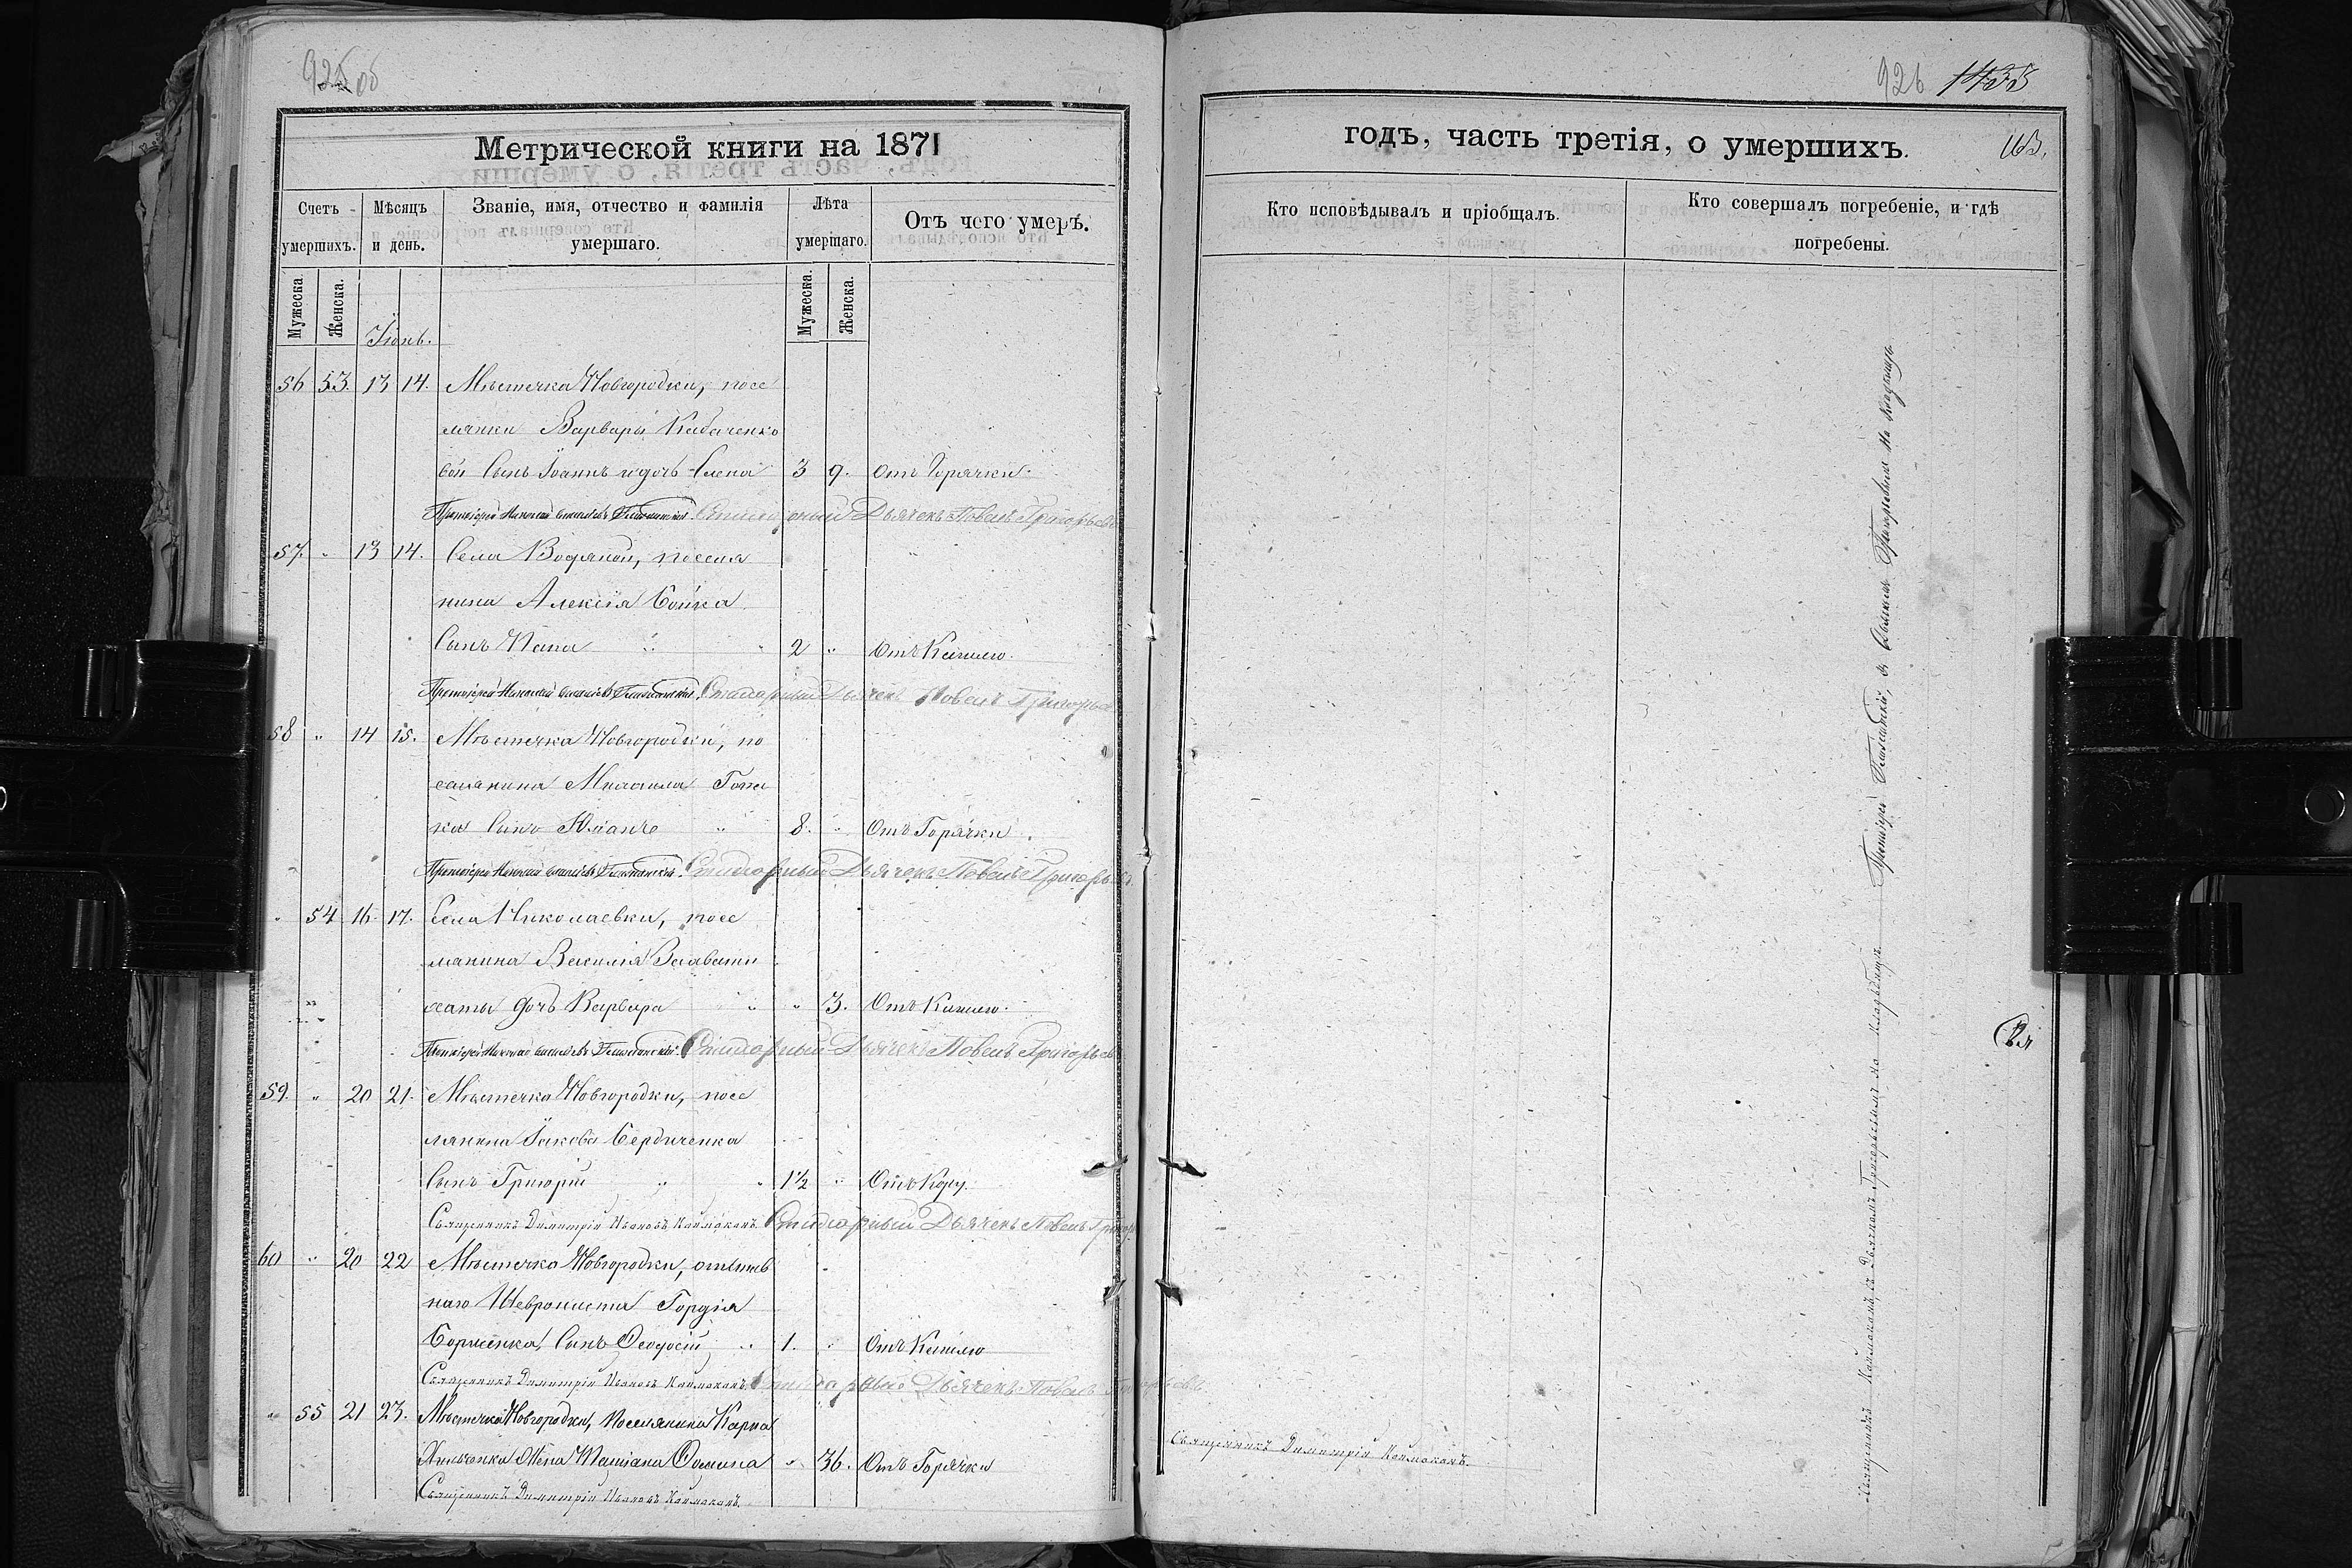 925 об
Метрической книги на 1871
Счетъ умершихъ.
Мѣсяцъ и день.
Званіе, имя, отчество и фамилія умершаго.
Лѣта умершаго.
Отъ чего умеръ.
Мужеска.
Женска.
Мужеска.
Женска.
Іюнь.
56 53. 13 14. Мѣстечка Новгородки, посе
лянки Варвары Кабаченко
вой Сынъ Іоаннъ и дочь Елена 3 9. Отъ Горячки.
Протоіерей Николай Стихарный Дьячекъ Павелъ Григорьевъ
57. „ 13 14. Села Водяной, поселя
нина Алексія Бойка
Сынъ „ 2 „ Отъ Кашлю.
Протоіерей Николай Стихарный Дьячекъ Павелъ Григорьев
58 „ 14 15. Мѣстечка Новгородки, по
селянина Михаила
ка Сынъ „ 8. „ Отъ Горячки.
Протоіерей Николай Стихарный Дьячекъ Павелъ Григорьевъ
„ 54 16. 17. Села Николаевки, посе
лянина Василія
хаты дочь Варвара „ „ 3. Отъ Кашлю.
Протоіерей Николай Стихарный Дьячекъ Павелъ Григорьевъ
59. „ 20 21. Мѣстечка Новгородки, посе
лянина Іакова Бердиченка
Сынъ Григорій „ „ 1½ „ Отъ Кору.
Священникъ Димитрій Ивановъ Каймаканъ. Стихарный Дьячекъ Павелъ Григор
60 „ 20 22 Мѣстечка Новгородки, отстав
наго Шеврониста Гордія
Сынъ Ѳеодосій „ 1. „ Отъ Кашлю
Священникъ Димитрій Ивановъ Каймаканъ. Стихарный Дьячекъ Павелъ Григорьевъ
„ 55 21 23. Мѣстечка Новгородки, Поселянина Карпа
Жена Ѳомина „ 36. Отъ Горячки
Священникъ Димитрій Ивановъ Каймаканъ.
926 1433
годъ, часть третія, о умершихъ.
163.
Кто исповѣдывалъ и пріобщалъ.
Кто совершалъ погребеніе, и гдѣ погребены.
Протоіерей съ Дьякомъ Григорьевымъ на Кладбищѣ.
Священникъ Каймаканъ, съ Дьячкомъ Григорьевымъ на кладбищѣ.
Священникъ Димитрій Каймаканъ.